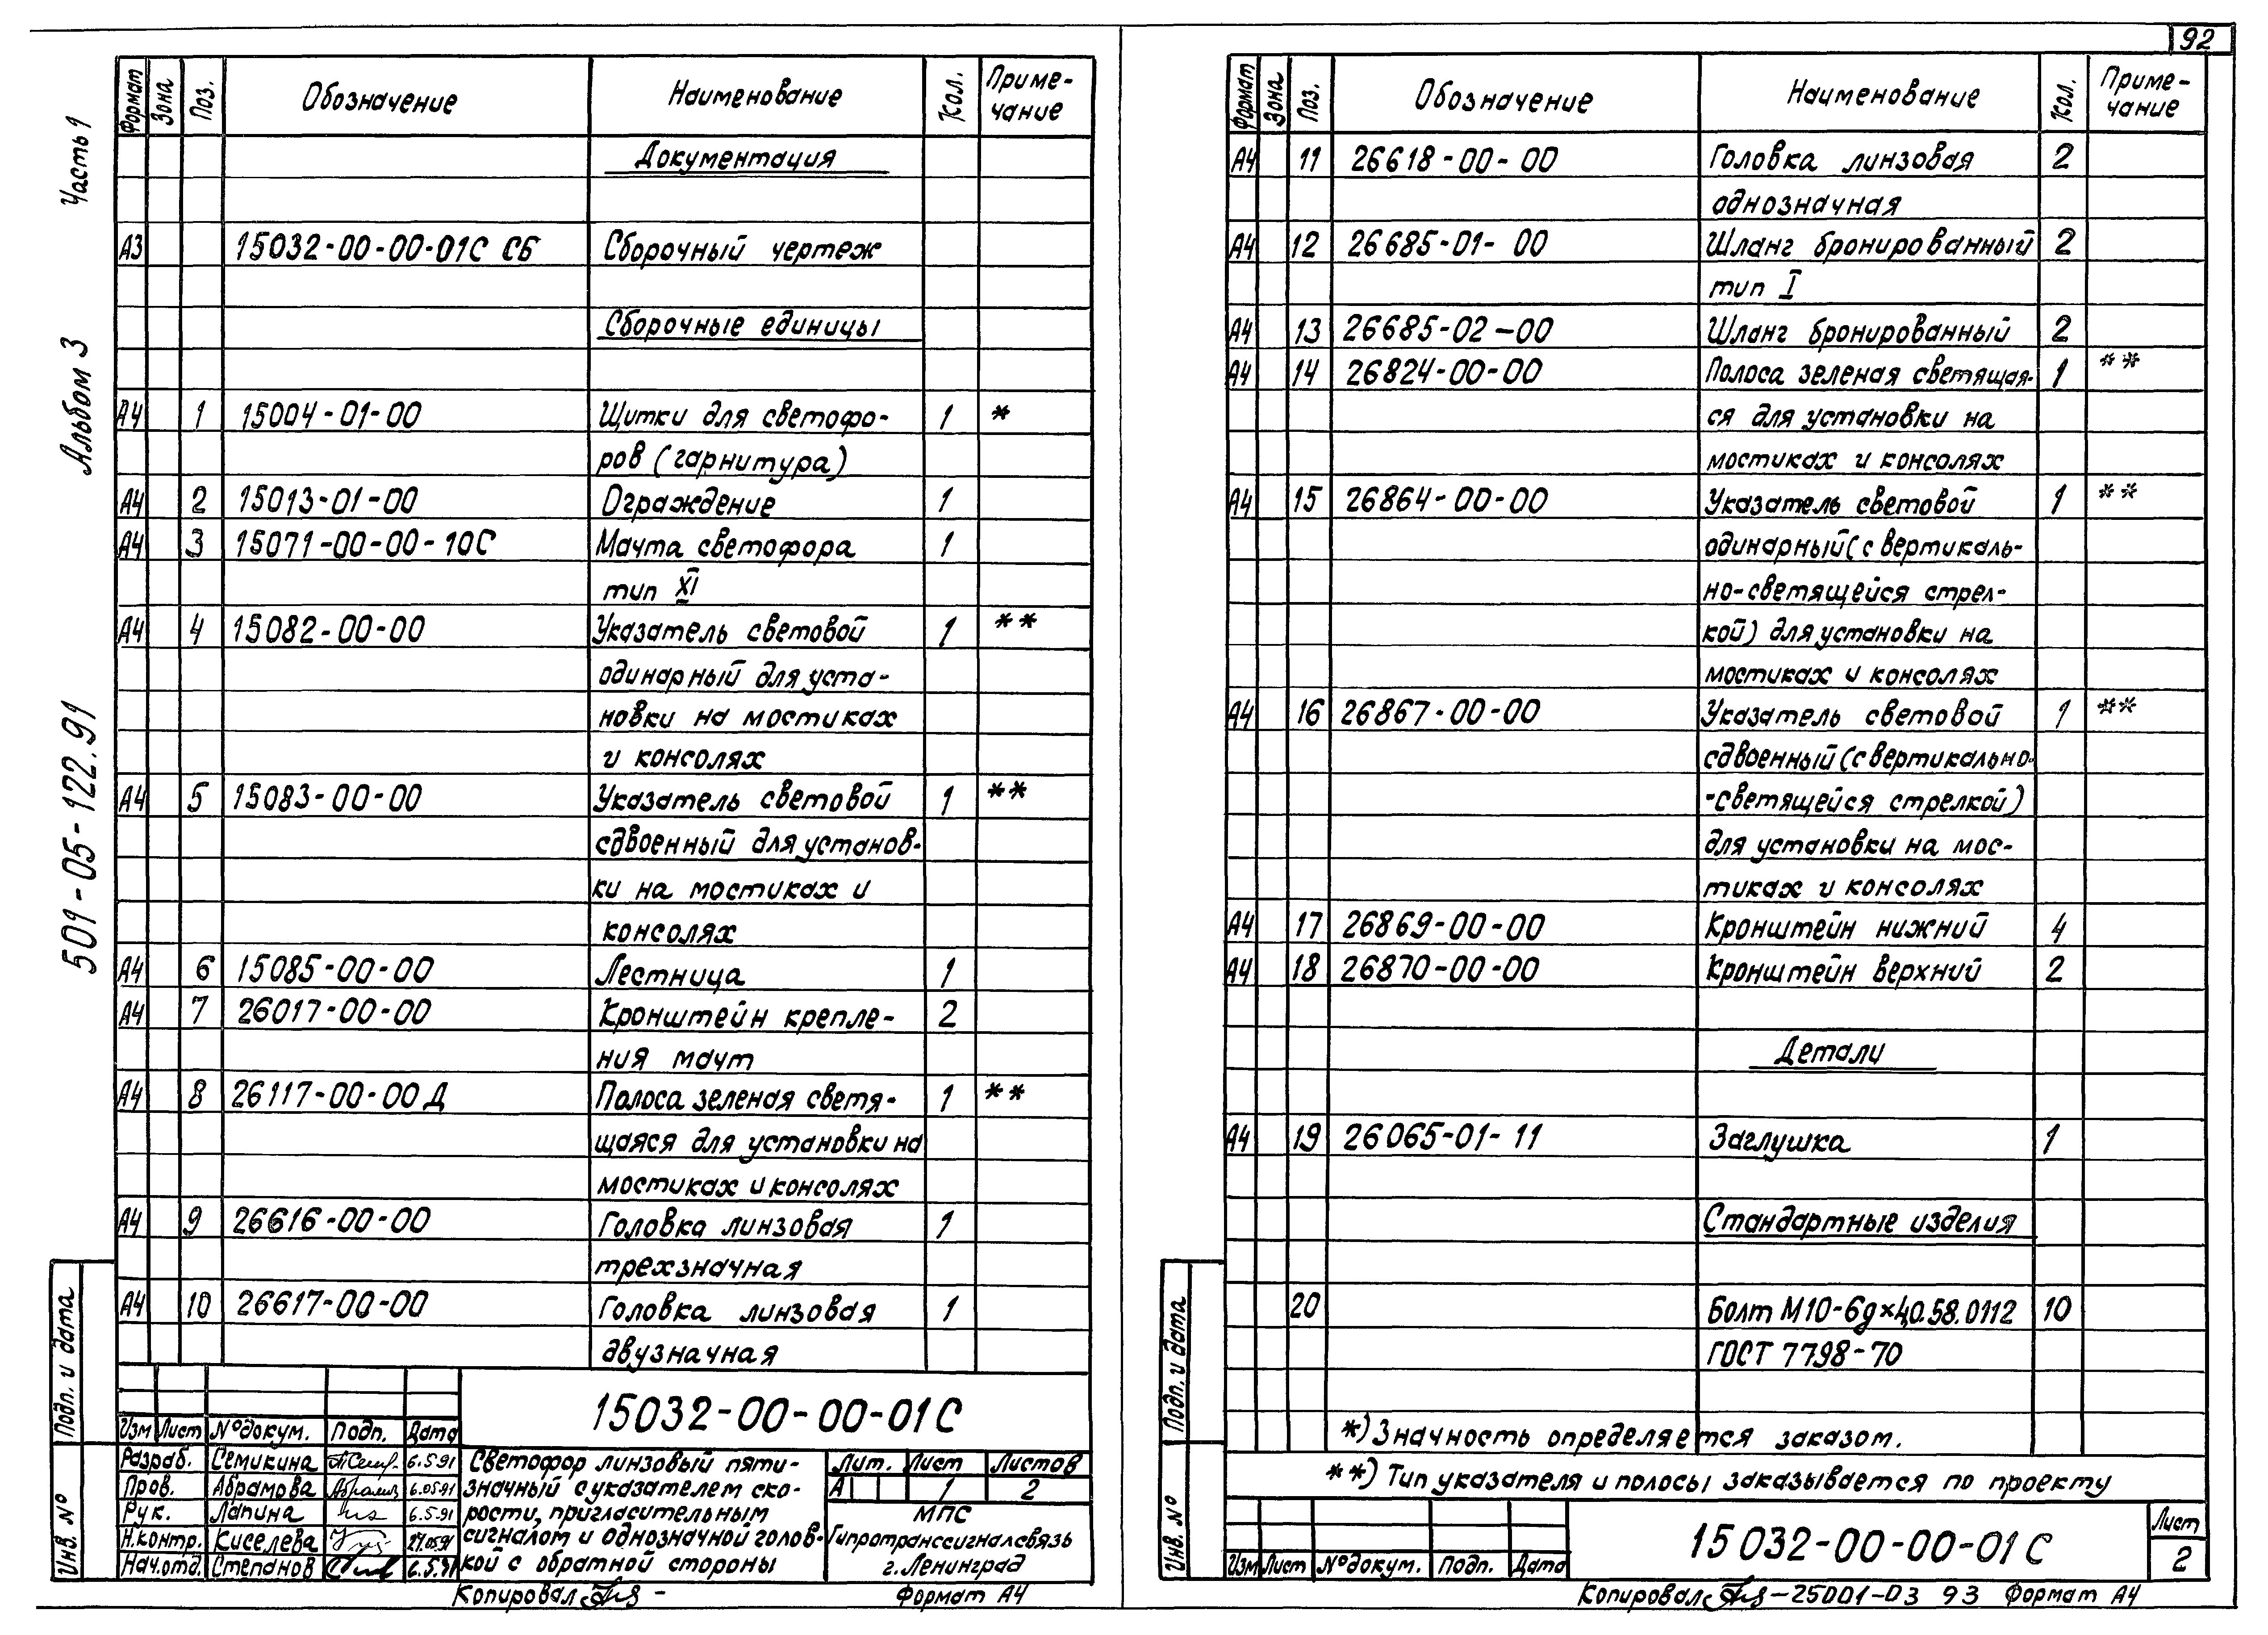 92
Часть 1
Альбом 3
501-05-122.91
Формат Зона Поз. Обозначение Наименование Кол. Приме-
чание
Документация
А3 15032-00-00-01С СБ Сборочный чертеж
Сборочные единицы
А4 1 15004-01-00 Щитки для светофо- 1 *
ров (гарнитура)
А4 2 15013-01-00 Ограждение 1
А4 3 15071-00-00-10С Мачта светофора 1
тип XI
А4 4 15082-00-00 Указатель световой 1 **
одинарный для уста-
новки на мостиках
и консолях
А4 5 15083-00-00 Указатель световой 1 **
сдвоенный для установ-
ки на мостиках и
консолях
А4 6 15085-00-00 Лестница 1
А4 7 26017-00-00 Кронштейн крепле- 2
ния мачт
А4 8 26117-00-00 Д Полоса зеленая светя- 1 **
щаяся для установки на
мостиках и консолях
А4 9 26616-00-00 Головка линзовая 1
трехзначная
А4 10 26617-00-00 Головка линзовая 1
двузначная
15032-00-00-01С
Изм Лист № докум. Подп. Дата
Разраб. Семикина 6.5.91
Пров. Абрамова 6.05.91
Рук. Лапина 6.5.91
Н.контр. Киселева 27.05.91
Нач.отд. Степанов 6.5.91
Светофор линзовый пяти-
значный с указателем ско-
рости, пригласительным
сигналом и однозначной голов-
кой с обратной стороны
Лит. Лист Листов
А 1 2
МПС
Гипротранссигналсвязь
г. Ленинград
Подп. и дата
Инв. №
Копировал Формат А4
Формат Зона Поз. Обозначение Наименование Кол. Приме-
чание
А4 11 26618-00-00 Головка линзовая 2
однозначная
А4 12 26685-01-00 Шланг бронированный 2
тип I
А4 13 26685-02-00 Шланг бронированный 2
А4 14 26824-00-00 Полоса зеленая светящая- 1 **
ся для установки на
мостиках и консолях
А4 15 26864-00-00 Указатель световой 1 **
одинарный (с вертикаль-
но-светящейся стрел-
кой) для установки на
мостиках и консолях
А4 16 26867-00-00 Указатель световой 1 **
сдвоенный (с вертикально-
-светящейся стрелкой)
для установки на мос-
тиках и консолях
А4 17 26869-00-00 Кронштейн нижний 4
А4 18 26870-00-00 Кронштейн верхний 2
Детали
А4 19 26065-01-11 Заглушка 1
Стандартные изделия
20 Болт М10-6g×40.58.0112 10
ГОСТ 7798-70
*) Значность определяется заказом.
**) Тип указателя и полосы заказывается по проекту
15032-00-00-01С
Лист
2
Изм Лист № докум. Подп. Дата
Подп. и дата
Инв. №
Копировал -25001-03 93 Формат А4